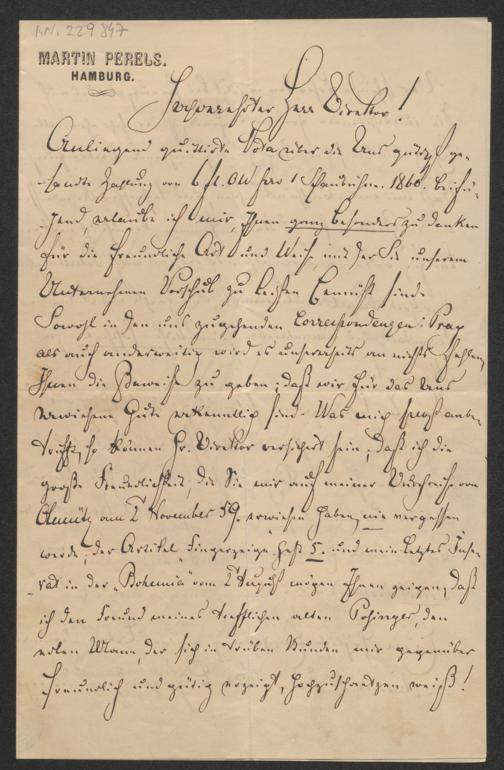 I.N. 229847
MARTIN PERELS.
HAMBURG.
Hochverehrter Herr Direktor!
Anliegend quittirte Nota über die Uns gütigst ge-
sandte Zahlung von 6 fl. ÖW pro 1 1860. beifü-
gend, erlaube ich mir, Ihnen ganz besonders zu danken
für die freundliche Art und Weise, mit der Sie unserem
Unternehmen Vorschub zu leisten bemüht sind.
Sowohl in den uns zugehenden Correspondenzen: Prag
als auch anderweitig wird es unsererseits an nichts fehlen,
Ihnen die Beweise zu geben, daß wir für das Uns
erwiesene Gute erkenntlich sind. Was mich selbst anbe-
trifft, so können Hr. Direktor versichert sein, daß ich die
große Freundlichkeit, die Sie mir auf meiner Durchreise von
Olmütz am 2 November 59. erwiesen haben, nie vergessen
werde; der Artikel "Fingerzeige" Heft 5. und mein letztes Inse-
rat in der "Bohemia" vom 2 August mögen Ihnen zeigen, daß
ich den Freund meines trefflichen alten, den
edlen Mann, der sich in trüben Stunden mir gegenüber
freundlich und gütig erzeigt, hochzuschaetzen weiß!